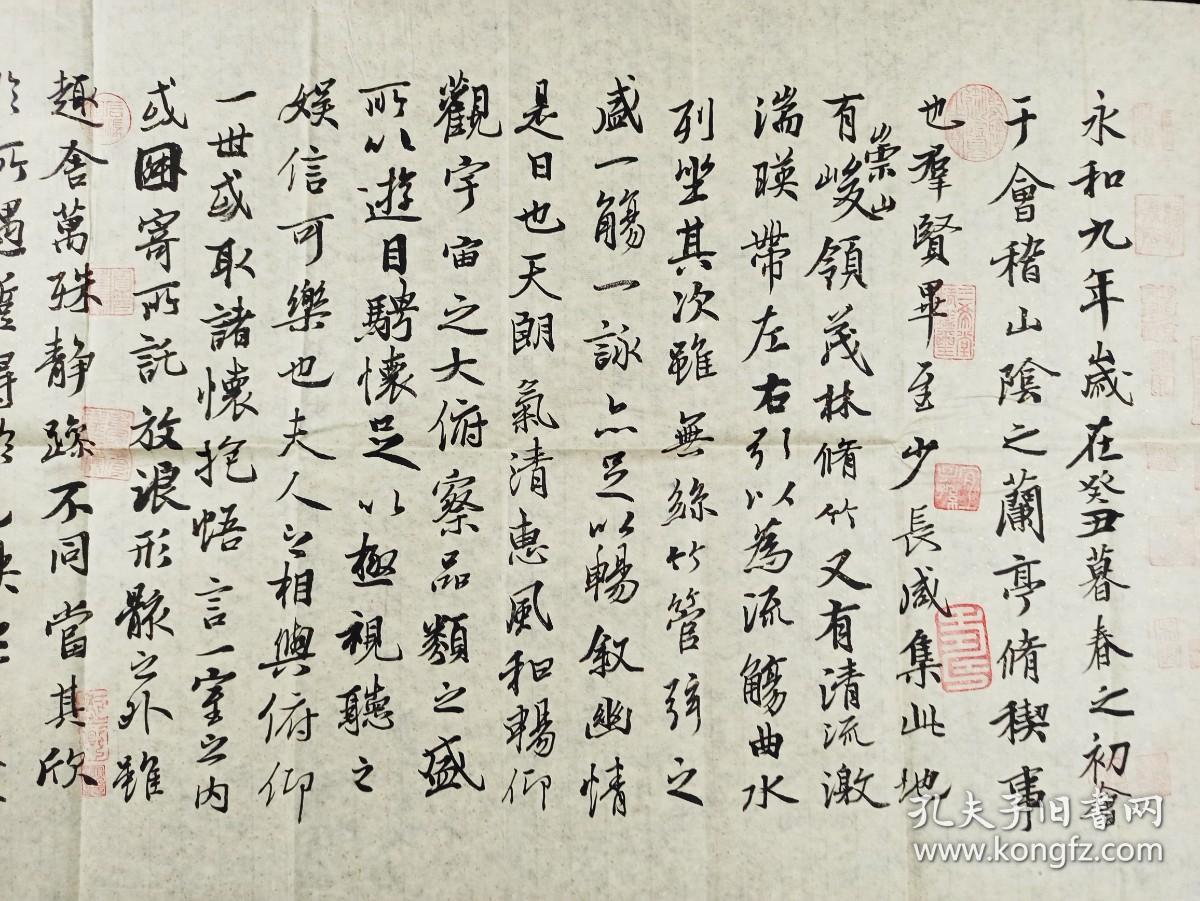 永和九年歲在癸丑暮春之初會
于會稽山陰之蘭亭脩稧事
也群賢畢至少長咸集此地
有崇山峻領茂林脩竹又有清流激
湍暎帶左右引以為流觴曲水
列坐其次雖無絲竹管弦之
盛一觴一詠亦足以暢叙幽情
是日也天朗氣清惠風和暢仰
觀宇宙之大俯察品類之盛
所以遊目騁懷足以極視聽之
娛信可樂也夫人之相與俯仰
一世或取諸懷抱悟言一室之內
或因寄所託放浪形骸之外雖
趣舍萬殊静躁不同當其欣
於所遇蹔得於己快
孔夫子旧书网
www.kongfz.com